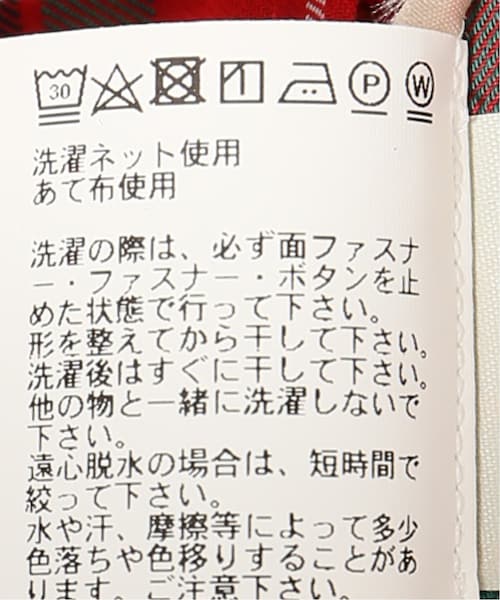 30 P W
洗濯ネット使用
あて布使用
洗濯の際は、必ず面ファスナ
ー・ファスナー・ボタンを止
めた状態で行って下さい。
形を整えてから干して下さい。
洗濯後はすぐに干して下さい。
他の物と一緒に洗濯しないで
下さい。
遠心脱水の場合は、短時間で
絞って下さい。
水や汗、摩擦等によって多少
色落ちや色移りすることがあ
ります。ご注意下さい。